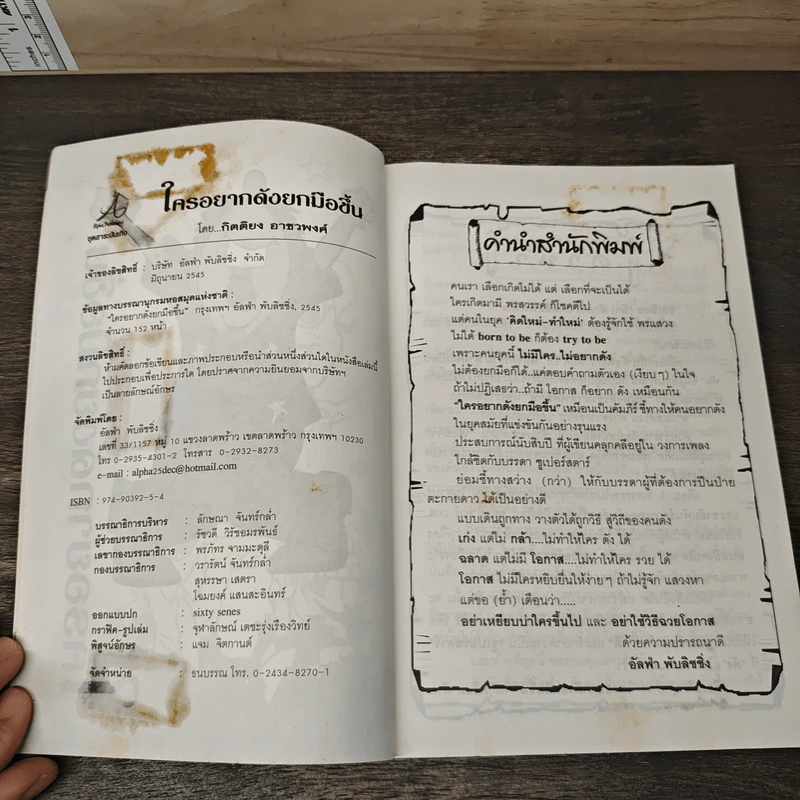 ใครอยากดังยกมือขึ้น
โดย...กิตติยง อาชวพงศ์
Alpha Publishing
ชุดสาระบันเทิง
เจ้าของลิขสิทธิ์ : บริษัท อัลฟ่า พับลิชซิ่ง จำกัด
มิถุนายน 2545
ข้อมูลทางบรรณานุกรมหอสมุดแห่งชาติ :
"ใครอยากดังยกมือขึ้น" กรุงเทพฯ อัลฟ่า พับลิชซิ่ง, 2545
จำนวน 152 หน้า
สงวนลิขสิทธิ์ :
ห้ามคัดลอกข้อเขียนและภาพประกอบหรือนำส่วนหนึ่งส่วนใดในหนังสือเล่มนี้
ไปประกอบเพื่อประการใด โดยปราศจากความยินยอมจากบริษัทฯ
เป็นลายลักษณ์อักษร
จัดพิมพ์โดย :
อัลฟ่า พับลิชซิ่ง
เลขที่ 33/1157 หมู่ 10 แขวงลาดพร้าว เขตลาดพร้าว กรุงเทพฯ 10230
โทร 0-2935-4301-2 โทรสาร 0-2932-8273
e-mail : alpha25dec@hotmail.com
ISBN : 974-90392-5-4
บรรณาธิการบริหาร : ลักษณา จันทร์กล่ำ
ผู้ช่วยบรรณาธิการ : รัชวดี วิรัชอมรพันธ์
เลขากองบรรณาธิการ : พรภัทร จามมะตุลิ
กองบรรณาธิการ : วรารัตน์ จันทร์กล่ำ
สุหรรษา เสตรา
โฉมยงค์ แสนสะอินทร์
ออกแบบปก : sixty senes
กราฟิค-รูปเล่ม : จุฬาลักษณ์ เตชะรุ่งเรืองวิทย์
พิสูจน์อักษร : แจม จิตกานต์
จัดจำหน่าย : ธนบรรณ โทร. 0-2434-8270-1
คำนำสำนักพิมพ์
คนเรา เลือกเกิดไม่ได้ แต่ เลือกที่จะเป็นได้
ใครเกิดมามี พรสวรรค์ ก็โชคดีไป
แต่คนในยุค 'คิดใหม่-ทำใหม่' ต้องรู้จักใช้ พรแสวง
ไม่ได้ born to be ก็ต้อง try to be
เพราะคนยุคนี้ ไม่มีใคร..ไม่อยากดัง
ไม่ต้องยกมือก็ได้..แค่ตอบคำถามตัวเอง (เงียบๆ) ในใจ
ถ้าไม่ปฏิเสธว่า..ถ้ามี โอกาส ก็อยาก ดัง เหมือนกัน
"ใครอยากดังยกมือขึ้น" เหมือนเป็นคัมภีร์ ชี้ทางให้คนอยากดัง
ในยุคสมัยที่แข่งขันกันอย่างรุนแรง
ประสบการณ์นับสิบปี ที่ผู้เขียนคลุกคลีอยู่ใน วงการเพลง
ใกล้ชิดกับบรรดา ซูเปอร์สตาร์
ย่อมชี้ทางสว่าง (กว่า) ให้กับบรรดาผู้ที่ต้องการปีนป่าย
ตะกายดาว ได้เป็นอย่างดี
แบบเดินถูกทาง วางตัวได้ถูกวิธี สู่วิถีของคนดัง
เก่ง แต่ไม่ กล้า....ไม่ทำให้ใคร ดัง ได้
ฉลาด แต่ไม่มี โอกาส....ไม่ทำให้ใคร รวย ได้
โอกาส ไม่มีใครหยิบยื่นให้ง่ายๆ ถ้าไม่รู้จัก แสวงหา
แต่ขอ (ย้ำ) เตือนว่า.....
อย่าเหยียบบ่าใครขึ้นไป และ อย่าใช้วิธีฉวยโอกาส
ด้วยความปรารถนาดี
อัลฟ่า พับลิชซิ่ง